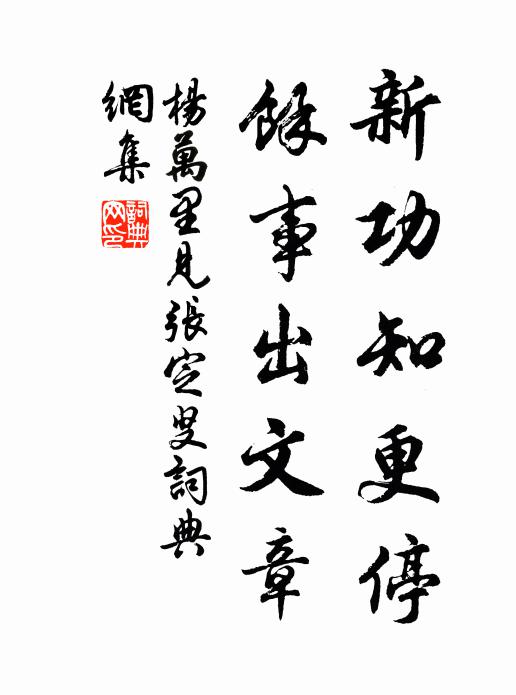 新功知更停
餘事出文章
楊萬里見張定叟詞典
網集
詞典
网印